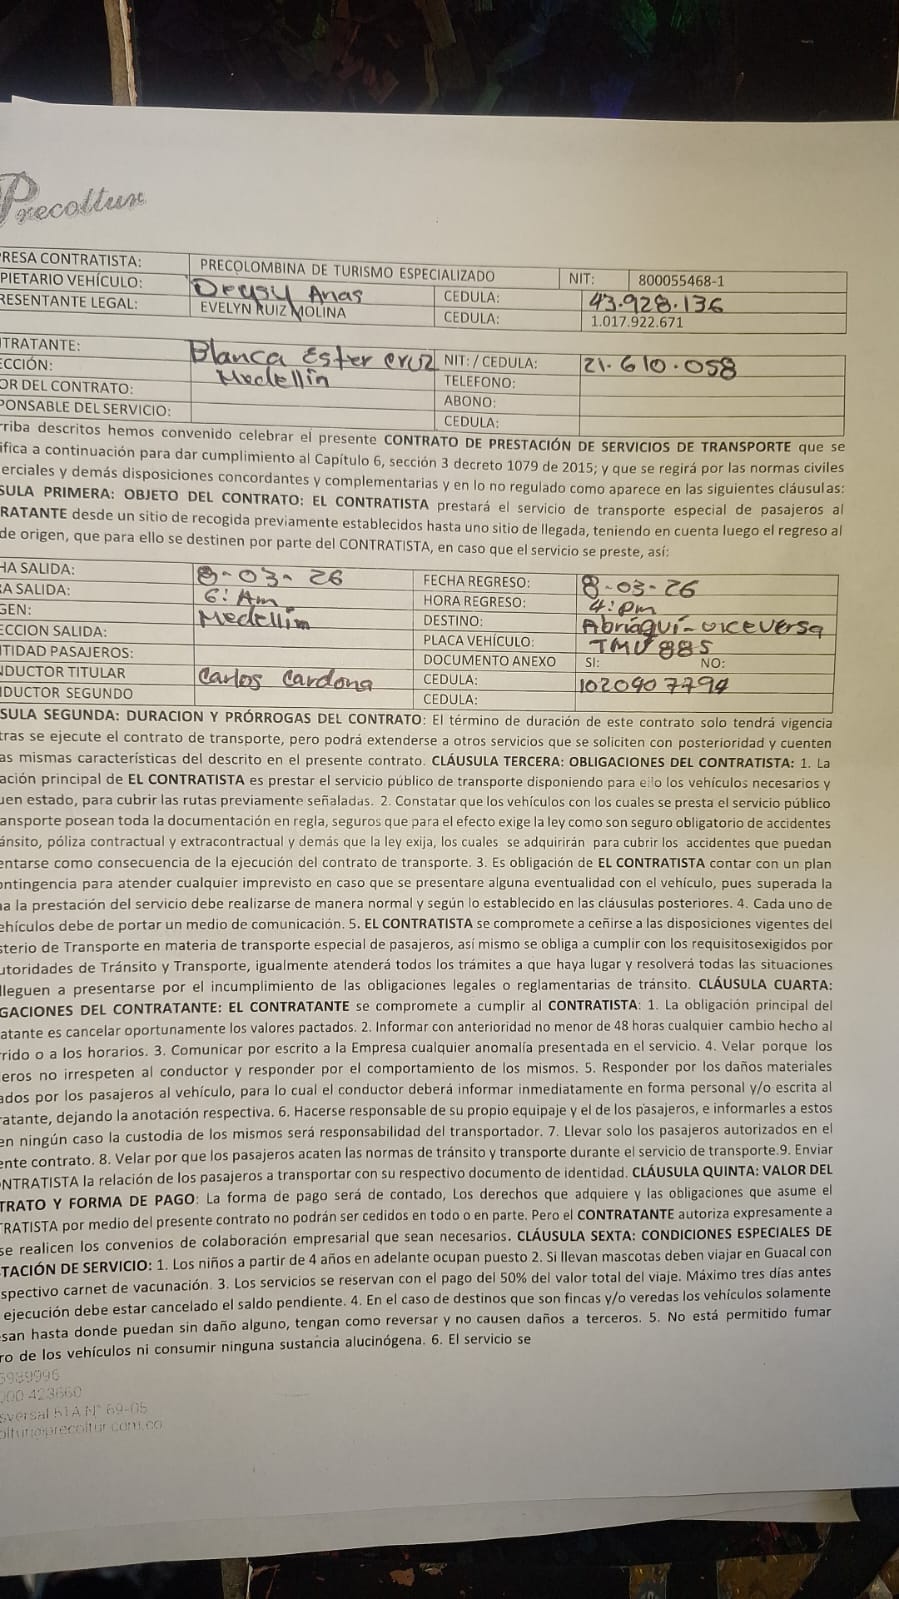 Precoltur
RESA CONTRATISTA: PRECOLOMBINA DE TURISMO ESPECIALIZADO NIT: 800055468-1
PIETARIO VEHÍCULO: Deysy Arias CEDULA: 43.928.136
RESENTANTE LEGAL: EVELYN RUIZ MOLINA CEDULA: 1.017.922.671
TRATANTE: Blanca Ester cruz NIT: / CEDULA: 21.610.058
ECCIÓN: Medellín TELEFONO:
OR DEL CONTRATO: ABONO:
PONSABLE DEL SERVICIO: CEDULA:
rriba descritos hemos convenido celebrar el presente CONTRATO DE PRESTACIÓN DE SERVICIOS DE TRANSPORTE que se
ifica a continuación para dar cumplimiento al Capítulo 6, sección 3 decreto 1079 de 2015; y que se regirá por las normas civiles
erciales y demás disposiciones concordantes y complementarias y en lo no regulado como aparece en las siguientes cláusulas:
SULA PRIMERA: OBJETO DEL CONTRATO: EL CONTRATISTA prestará el servicio de transporte especial de pasajeros al
RATANTE desde un sitio de recogida previamente establecidos hasta uno sitio de llegada, teniendo en cuenta luego el regreso al
de origen, que para ello se destinen por parte del CONTRATISTA, en caso que el servicio se preste, así:
HA SALIDA: 8-03-26 FECHA REGRESO: 8-03-26
RA SALIDA: 6:Am HORA REGRESO: 4:pm
GEN: Medellín DESTINO: Abriaquí-viceversa
ECCION SALIDA: PLACA VEHÍCULO: TMU885
TIDAD PASAJEROS: DOCUMENTO ANEXO SI: NO:
NDUCTOR TITULAR Carlos Cardona CEDULA: 1020407794
NDUCTOR SEGUNDO CEDULA:
SULA SEGUNDA: DURACION Y PRÓRROGAS DEL CONTRATO: El término de duración de este contrato solo tendrá vigencia
tras se ejecute el contrato de transporte, pero podrá extenderse a otros servicios que se soliciten con posterioridad y cuenten
as mismas características del descrito en el presente contrato. CLÁUSULA TERCERA: OBLIGACIONES DEL CONTRATISTA: 1. La
ación principal de EL CONTRATISTA es prestar el servicio público de transporte disponiendo para ello los vehículos necesarios y
uen estado, para cubrir las rutas previamente señaladas. 2. Constatar que los vehículos con los cuales se presta el servicio público
ansporte posean toda la documentación en regla, seguros que para el efecto exige la ley como son seguro obligatorio de accidentes
ánsito, póliza contractual y extracontractual y demás que la ley exija, los cuales se adquirirán para cubrir los accidentes que puedan
entarse como consecuencia de la ejecución del contrato de transporte. 3. Es obligación de EL CONTRATISTA contar con un plan
ontingencia para atender cualquier imprevisto en caso que se presentare alguna eventualidad con el vehículo, pues superada la
na la prestación del servicio debe realizarse de manera normal y según lo establecido en las cláusulas posteriores. 4. Cada uno de
ehículos debe de portar un medio de comunicación. 5. EL CONTRATISTA se compromete a ceñirse a las disposiciones vigentes del
sterio de Transporte en materia de transporte especial de pasajeros, así mismo se obliga a cumplir con los requisitosexigidos por
utoridades de Tránsito y Transporte, igualmente atenderá todos los trámites a que haya lugar y resolverá todas las situaciones
lleguen a presentarse por el incumplimiento de las obligaciones legales o reglamentarias de tránsito. CLÁUSULA CUARTA:
GACIONES DEL CONTRATANTE: EL CONTRATANTE se compromete a cumplir al CONTRATISTA: 1. La obligación principal del
atante es cancelar oportunamente los valores pactados. 2. Informar con anterioridad no menor de 48 horas cualquier cambio hecho al
rrido o a los horarios. 3. Comunicar por escrito a la Empresa cualquier anomalía presentada en el servicio. 4. Velar porque los
eros no irrespeten al conductor y responder por el comportamiento de los mismos. 5. Responder por los daños materiales
ados por los pasajeros al vehículo, para lo cual el conductor deberá informar inmediatamente en forma personal y/o escrita al
ratante, dejando la anotación respectiva. 6. Hacerse responsable de su propio equipaje y el de los pasajeros, e informarles a estos
en ningún caso la custodia de los mismos será responsabilidad del transportador. 7. Llevar solo los pasajeros autorizados en el
ente contrato. 8. Velar por que los pasajeros acaten las normas de tránsito y transporte durante el servicio de transporte.9. Enviar
ONTRATISTA la relación de los pasajeros a transportar con su respectivo documento de identidad. CLÁUSULA QUINTA: VALOR DEL
TRATO Y FORMA DE PAGO: La forma de pago será de contado, Los derechos que adquiere y las obligaciones que asume el
TRATISTA por medio del presente contrato no podrán ser cedidos en todo o en parte. Pero el CONTRATANTE autoriza expresamente a
se realicen los convenios de colaboración empresarial que sean necesarios. CLÁUSULA SEXTA: CONDICIONES ESPECIALES DE
TACIÓN DE SERVICIO: 1. Los niños a partir de 4 años en adelante ocupan puesto 2. Si llevan mascotas deben viajar en Guacal con
spectivo carnet de vacunación. 3. Los servicios se reservan con el pago del 50% del valor total del viaje. Máximo tres días antes
ejecución debe estar cancelado el saldo pendiente. 4. En el caso de destinos que son fincas y/o veredas los vehículos solamente
esan hasta donde puedan sin daño alguno, tengan como reversar y no causen daños a terceros. 5. No está permitido fumar
ro de los vehículos ni consumir ninguna sustancia alucinógena. 6. El servicio se
5989996
000 423660
sversal 51A N° 69-05
oltur@precoltur.com.co